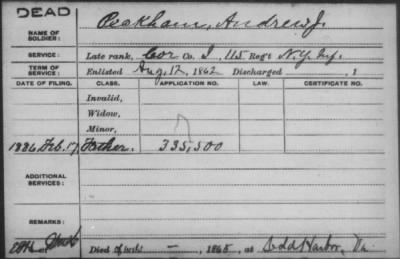 DEAD
NAME OF SOLDIER: Peckham, Andrew J.
SERVICE: Late rank, Cor Co. I, 115 Reg't N.Y. Inf.
TERM OF SERVICE: Enlisted Aug. 12, 1862 Discharged , 1
DATE OF FILING. CLASS. APPLICATION NO. LAW. CERTIFICATE NO.
Invalid,
Widow,
Minor,
1886 Feb. 17, Father. 335,500
ADDITIONAL SERVICES:
REMARKS:
Died of — , 1865, at Cold Harbor, Va.